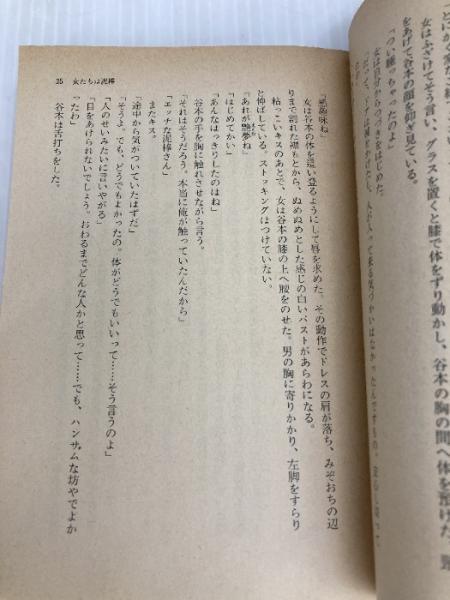 女はふざけてそう言い、グラスを置くと膝で体をずり動かし、谷本の胸の間へ体を預けた。
をあげて谷本の顔を仰ぎ見ている。
「つい眠っちゃったのよ」
「悪趣味ね」
女は谷本の体を這い登るようにして唇を求めた。その動作でドレスの肩が落ち、みぞおちの辺
りまで割れた襟もとから、ぬめぬめとした感じの白いバストがあらわになる。
粘っこいキスのあとで、女は谷本の膝の上へ腰をのせた。男の胸に寄りかかり、左脚をすらり
と伸ばしている。ストッキングはつけていない。
「あれが艶夢ね」
「はじめてかい」
「あんなはっきりしたのはね」
谷本の手を胸に触れさせながら言う。
「それはそうだろう。本当に俺が触っていたんだから」
「エッチな泥棒さん」
またキス。
「途中から気がついていたはずだ」
「そうよ。でも、どうでもよかったの。体がどうでもいいって……そう言うのよ」
「人のせいみたいに言いやがる」
「目をあけられないでしょう。おわるまでどんな人かと思って……でも、ハンサムな坊やでよか
ったわ」
谷本は舌打ちをした。
35 女たちは泥棒